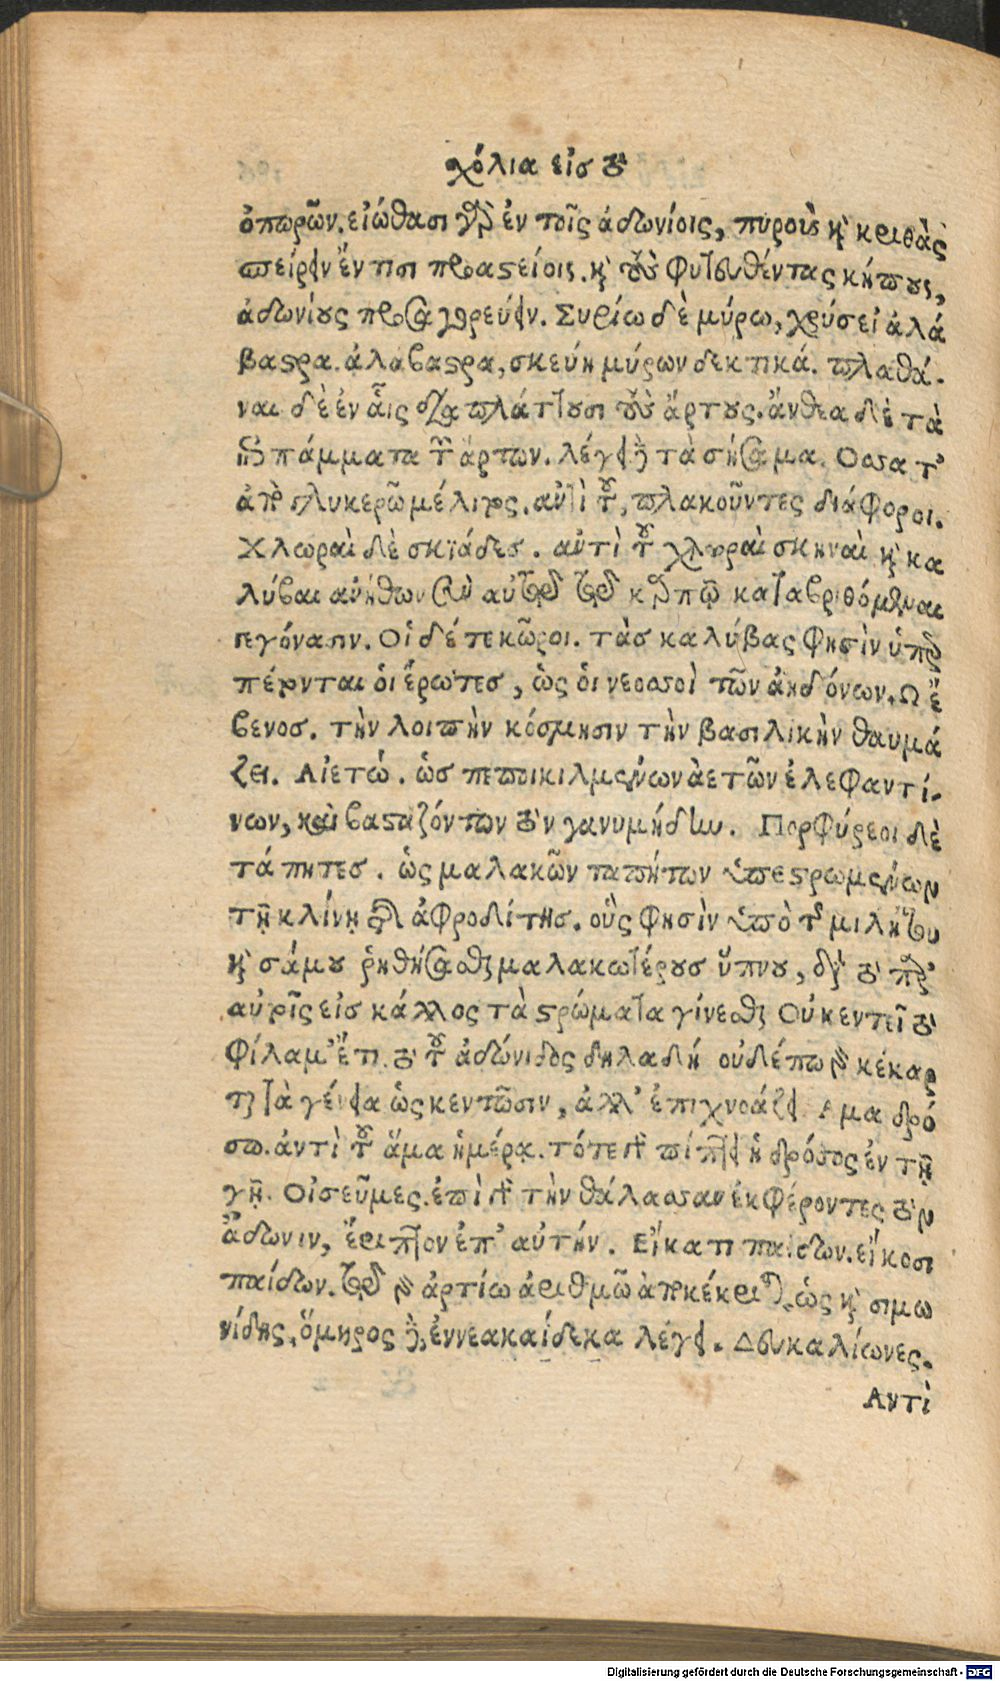 χόλια εἰσ τὸ
ὀπωρῶν. εἰώθασι γὰρ ἐν τοῖς ἀδωνίοις, πυροὺς καὶ κριθὰς
σπείρειν ἔν τισι προαστείοις. καὶ τοὺς φυτευθέντας κήπους,
ἀδωνίους προσαγορεύειν. Συρίω δὲ μύρω, χρύσει ἀλά
βαστρα. ἀλαβαστρα, σκεύη μύρων δεκτικά. πλαθά.
ναι δὲ ἐν αἷς διαπλάττουσι τοὺς ἄρτους. ἄνθεα δὲ τὰ
ἐπιπάμματα τῶν ἄρτων. λέγει δὲ τὰ σήσαμα. Οσσα τ'
ἀπὸ γλυκερῶ μέλιτος. αντὶ τοῦ, πλακοῦντες διάφοροι.
Χλωραὶ δὲ σκϊάδεσ. αντὶ τοῦ χλωραὶ σκηναὶ καὶ κα
λύβαι ανήθων σὺν αὐτῶ τῶ καρπῶ καταβριθόμεναι
γεγόνασιν. Οἱ δέ τε κῶροι. τὰσ καλύβας φησὶν ὑπερ
πέτονται ὁι ἔρωτεσ, ὡς ὁι νεοσσοὶ τῶν ἀηδόνων. Ω ἔ
βενοσ. τὴν λοιπὴν κόσμησιν τὴν βασιλικὴν θαυμά
ζει. Αἰετώ. ὡσ πεποικιλμένων ἀετῶν ἐλεφαντί-
νων, καὶ βασταζόντων τὸν γανυμήδην. Πορφύρεοι δὲ
τάπητεσ. ὡς μαλακῶν ταπήτων ὑπεστρωμένων
τῇ κλίνῃ τῆς ἀφροδίτησ. οὓς φησὶν ὑπὸ τῆς μιλήτου
καὶ σάμου ῥηθήσεσθαι μαλακωτέρουσ ὕπνου, διὰ τὸ παρ'
αὐτοῖς εἰσ κάλλος τὰ στρώματα γίνεσθαι Οὐ κεντεῖ τὸ
φίλαμ' ἔτι. τὸ τοῦ ἀδώνιδος δηλαδή οὐδέπω γὰρ κέκαρ
ται τὰ γένεια ὡς κεντῶσιν, ἀλλ' ἐπιχνοάζει. Αμα δρό
σω. ἀντὶ τοῦ ἅμα ἡμέρᾳ. τότε γὰρ πίπτει ἡ δρόσος ἐν τῇ
γῇ. Οἰσεῦμες. ἐπὶ γὰρ τὴν θάλασσαν ἐκφέροντες τὸν
ἄδωνιν, ἔριπτον ἐπ' αὐτήν. Εἴκατι παίδων. εἴκοσι
παίδων. τῶ γὰρ ἀρτίω ἀριθμῶ ἀποκέκριται, ὡς καὶ σιμω
νίδης, ὅμηρος δὲ, ἐννεακαίδεκα λέγει. Δευκαλίωνες.
Αντὶ
Digitalisierung gefördert durch die Deutsche Forschungsgemeinschaft - DFG